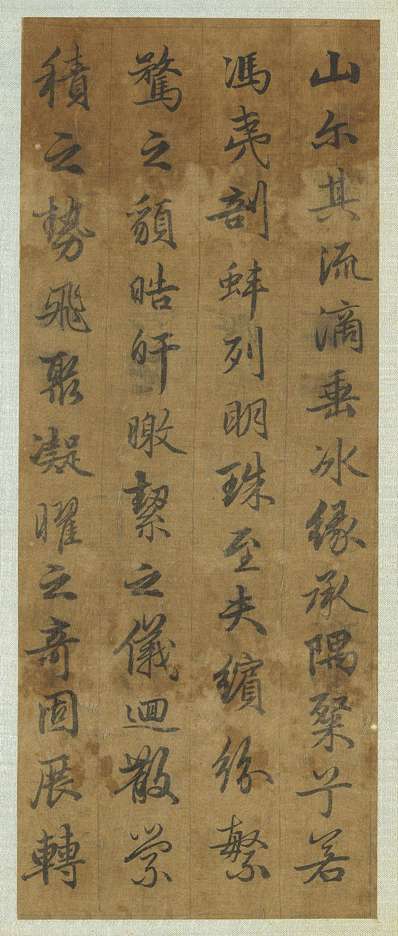 山尓其流滴垂冰緣承隅粲兮若
馮夷剖蚌列明珠至夫繽紛繁
騖之貌皓皔曒絜之儀迴散縈
積之勢飛聚凝曜之奇固展轉